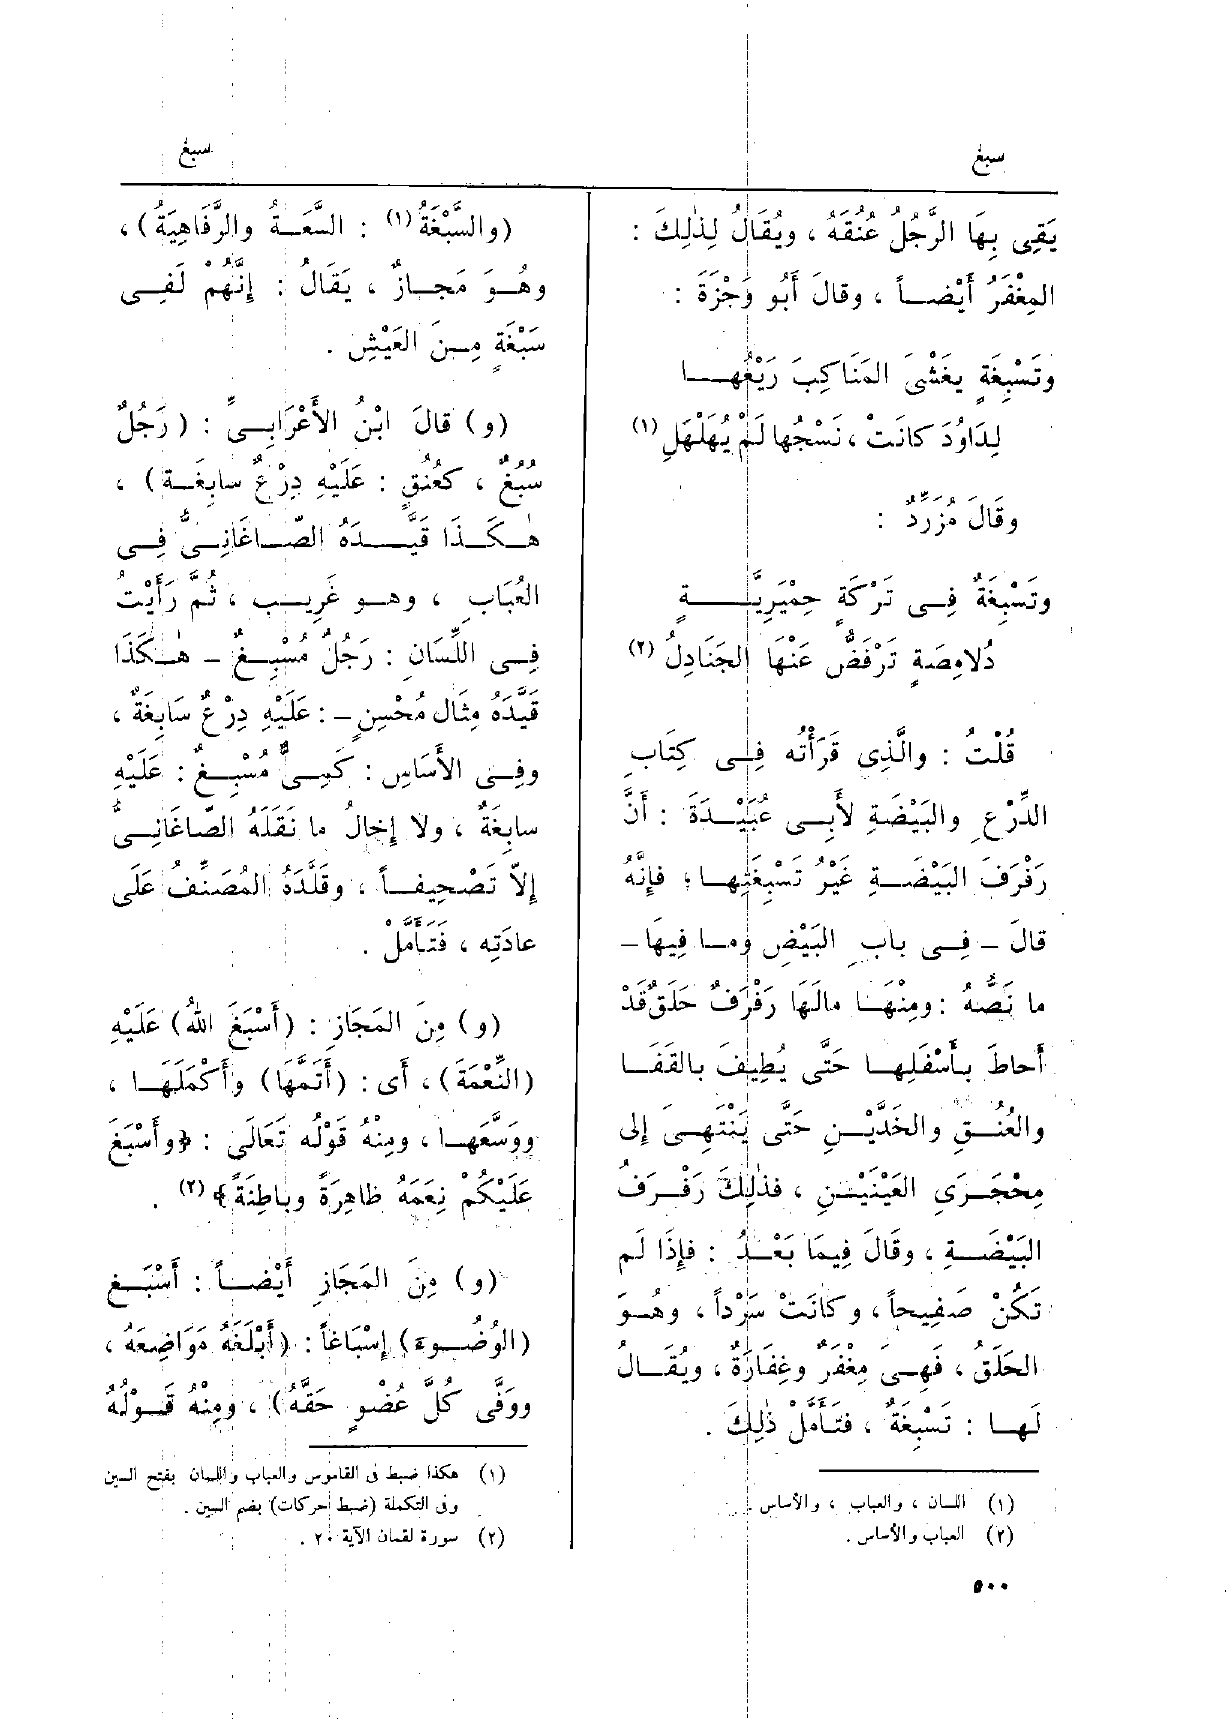 سبغ
سبغ
يَقِى بِهَا الرَّجُلُ عُنُقَهُ ، ويُقَالُ لِذٰلِكَ :
المِغْفَرُ أَيْضاً ، وقالَ أَبُو وَجْزَةَ :
وتَسْبِغَةٍ يَغْشَى المَنَاكِبَ رَيْعُها
لِدَاوُدَ كانَتْ ، نَسْجُها لَمْ يُهَلْهَلِ (١)
وقَالَ مُزَرِّدٌ :
وتَسْبِغَةٌ فِى تَرْكَةٍ حِمْيَرِيَّةٍ
دُلامِصَةٍ تَرْفَضُّ عَنْهَا الجَنَادِلُ (٢)
قُلْتُ : والَّذِى قَرَأْتُه فِى كِتَابِ
الدِّرْعِ والبَيْضَةِ لأَبِى عُبَيْدَةَ : أَنَّ
رَفْرَفَ البَيْضَةِ غَيْرُ تَسْبِغَتِها ؛ فإِنَّهُ
قالَ – فِى بابِ البَيْضِ وما فِيهَا –
ما نَصُّهُ : ومِنْهَا مالَهَا رَفْرَفٌ حَلَقٌ قَدْ
أَحاطَ بأَسْفَلِها حَتَّى يُطِيفَ بالقَفَا
والعُنُقِ والخَدَّيْنِ حَتَّى يَنْتَهِىَ إِلى
مِحْجَرَىِ العَيْنَيْنِ ، فذٰلِكَ رَفْرَفُ
البَيْضَةِ ، وقَالَ فِيمَا بَعْدُ : فإِذَا لَم
تَكُنْ صَفِيحاً ، وكانَتْ سَرْداً ، وهُوَ
الحَلَقُ ، فَهِىَ مِغْفَرٌ وغِفَارَةٌ ، ويُقَالُ
لَها : تَسْبِغَةٌ ، فتَأَمَّلْ ذٰلِكَ .
(١) اللسان ، والعباب ، والأساس .
(٢) العباب والأساس .
٥٠٠
(والسَّبْغَةُ (١) : السَّعَةُ والرَّفَاهِيَةُ) ،
وهُوَ مَجازٌ ، يَقَالُ : إِنَّهُمْ لَفِى
سَبْغَةٍ مِنَ العَيْشِ .
(و) قالَ ابْنُ الأَعْرَابِىِّ : (رَجُلٌ
سُبُغٌ ، كعُنُقٍ : عَلَيْهِ دِرْعٌ سابِغَة) ،
هٰكَذَا قَيَّدَهُ الصّاغَانِىُّ فِى
العُبَابِ ، وهو غَرِيب ، ثُمَّ رَأَيْتُ
فِى اللِّسَانِ : رَجُلٌ مُسْبِغٌ – هٰكَذَا
قَيَّدَهُ مِثَال مُحْسِنٍ – : عَلَيْهِ دِرْعٌ سَابِغَةٌ ،
وفِى الأَسَاسِ : كَمِىٌّ مُسْبِغٌ : عَلَيْهِ
سابِغَةٌ ، ولا إِخالُ ما نَقَلَهُ الصّاغَانِىُّ
إِلاّ تَصْحِيفاً ، وقَلَّدَهُ المُصَنِّفُ عَلَى
عادَتِه ، فَتَأَمَّلْ .
(و) مِنَ المَجَازِ : (أَسْبَغَ اللهُ) عَلَيْهِ
(النِّعْمَةَ) ، أَى : (أَتَمَّهَا) وأَكْمَلَهَا ،
ووَسَّعَها ، ومِنْهُ قَوْلُه تَعَالَى : ﴿وأَسْبَغَ
عَلَيْكُمْ نِعَمَهُ ظاهِرَةً وباطِنَةً﴾ (٢) .
(و) مِنَ المَجَازِ أَيْضاً : أَسْبَغ
(الوُضُوءَ) إِسْبَاغاً : (أَبْلَغَهُ مَوَاضِعَهُ ،
ووَفَّى كُلَّ عُضْوٍ حَقَّهُ) ، ومِنْهُ قَوْلُهُ
(١) هكذا ضبط فى القاموس والعباب واللسان بفتح السين
وفى التكملة (ضبط حركات) بضم السين .
(٢) سورة لقمان الآية ٢٠ .